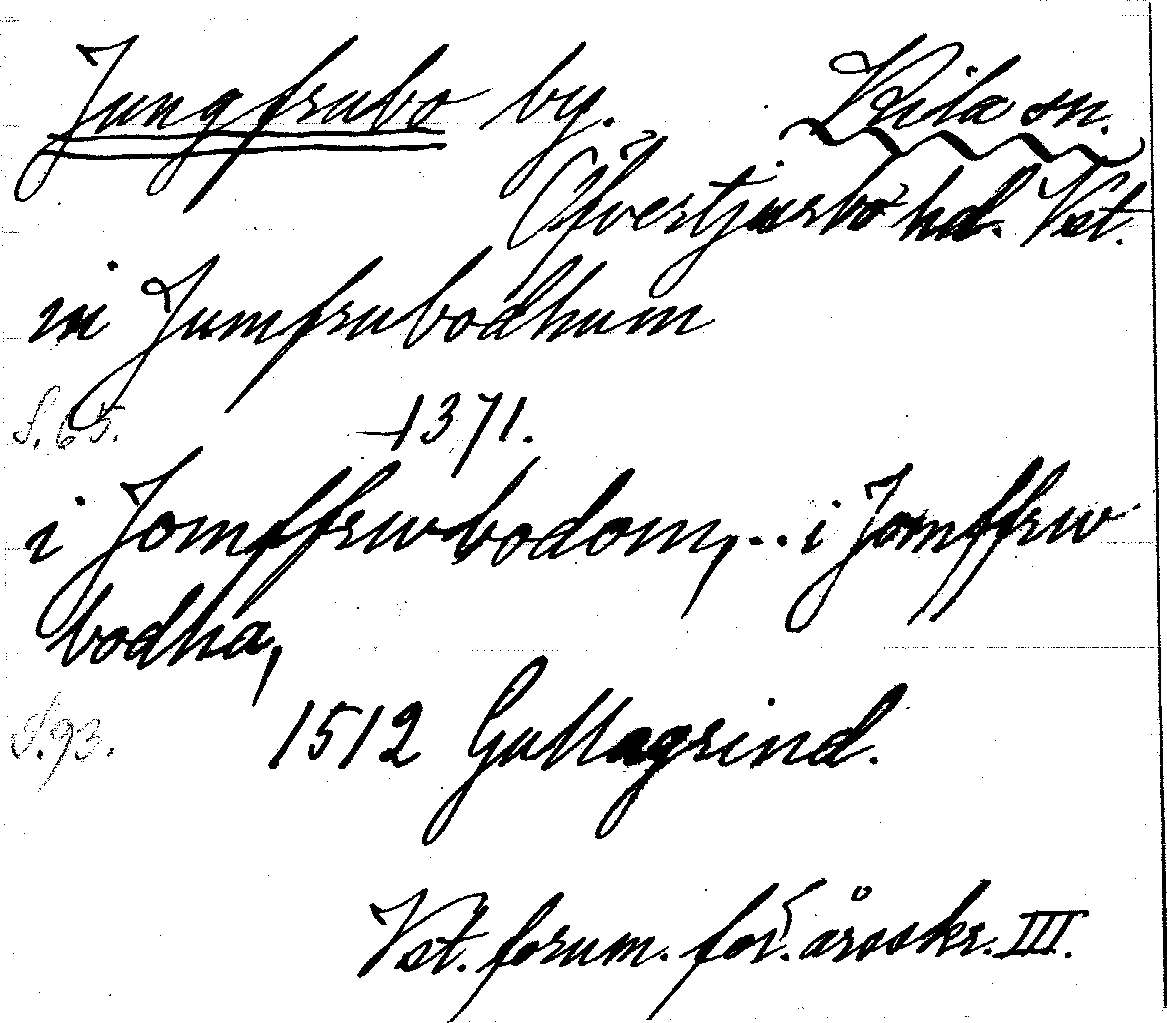 Jungfrubo by. Kila sn.
Öfvertjurbo hd. Vst.
in Jumfrubodhum
S. 65. 1371.
i Jomffrwbodom, .. i Jomffrw
bodha,
S. 93. 1512 Gullagrind.
Vst. fornm. för. årsskr. III.